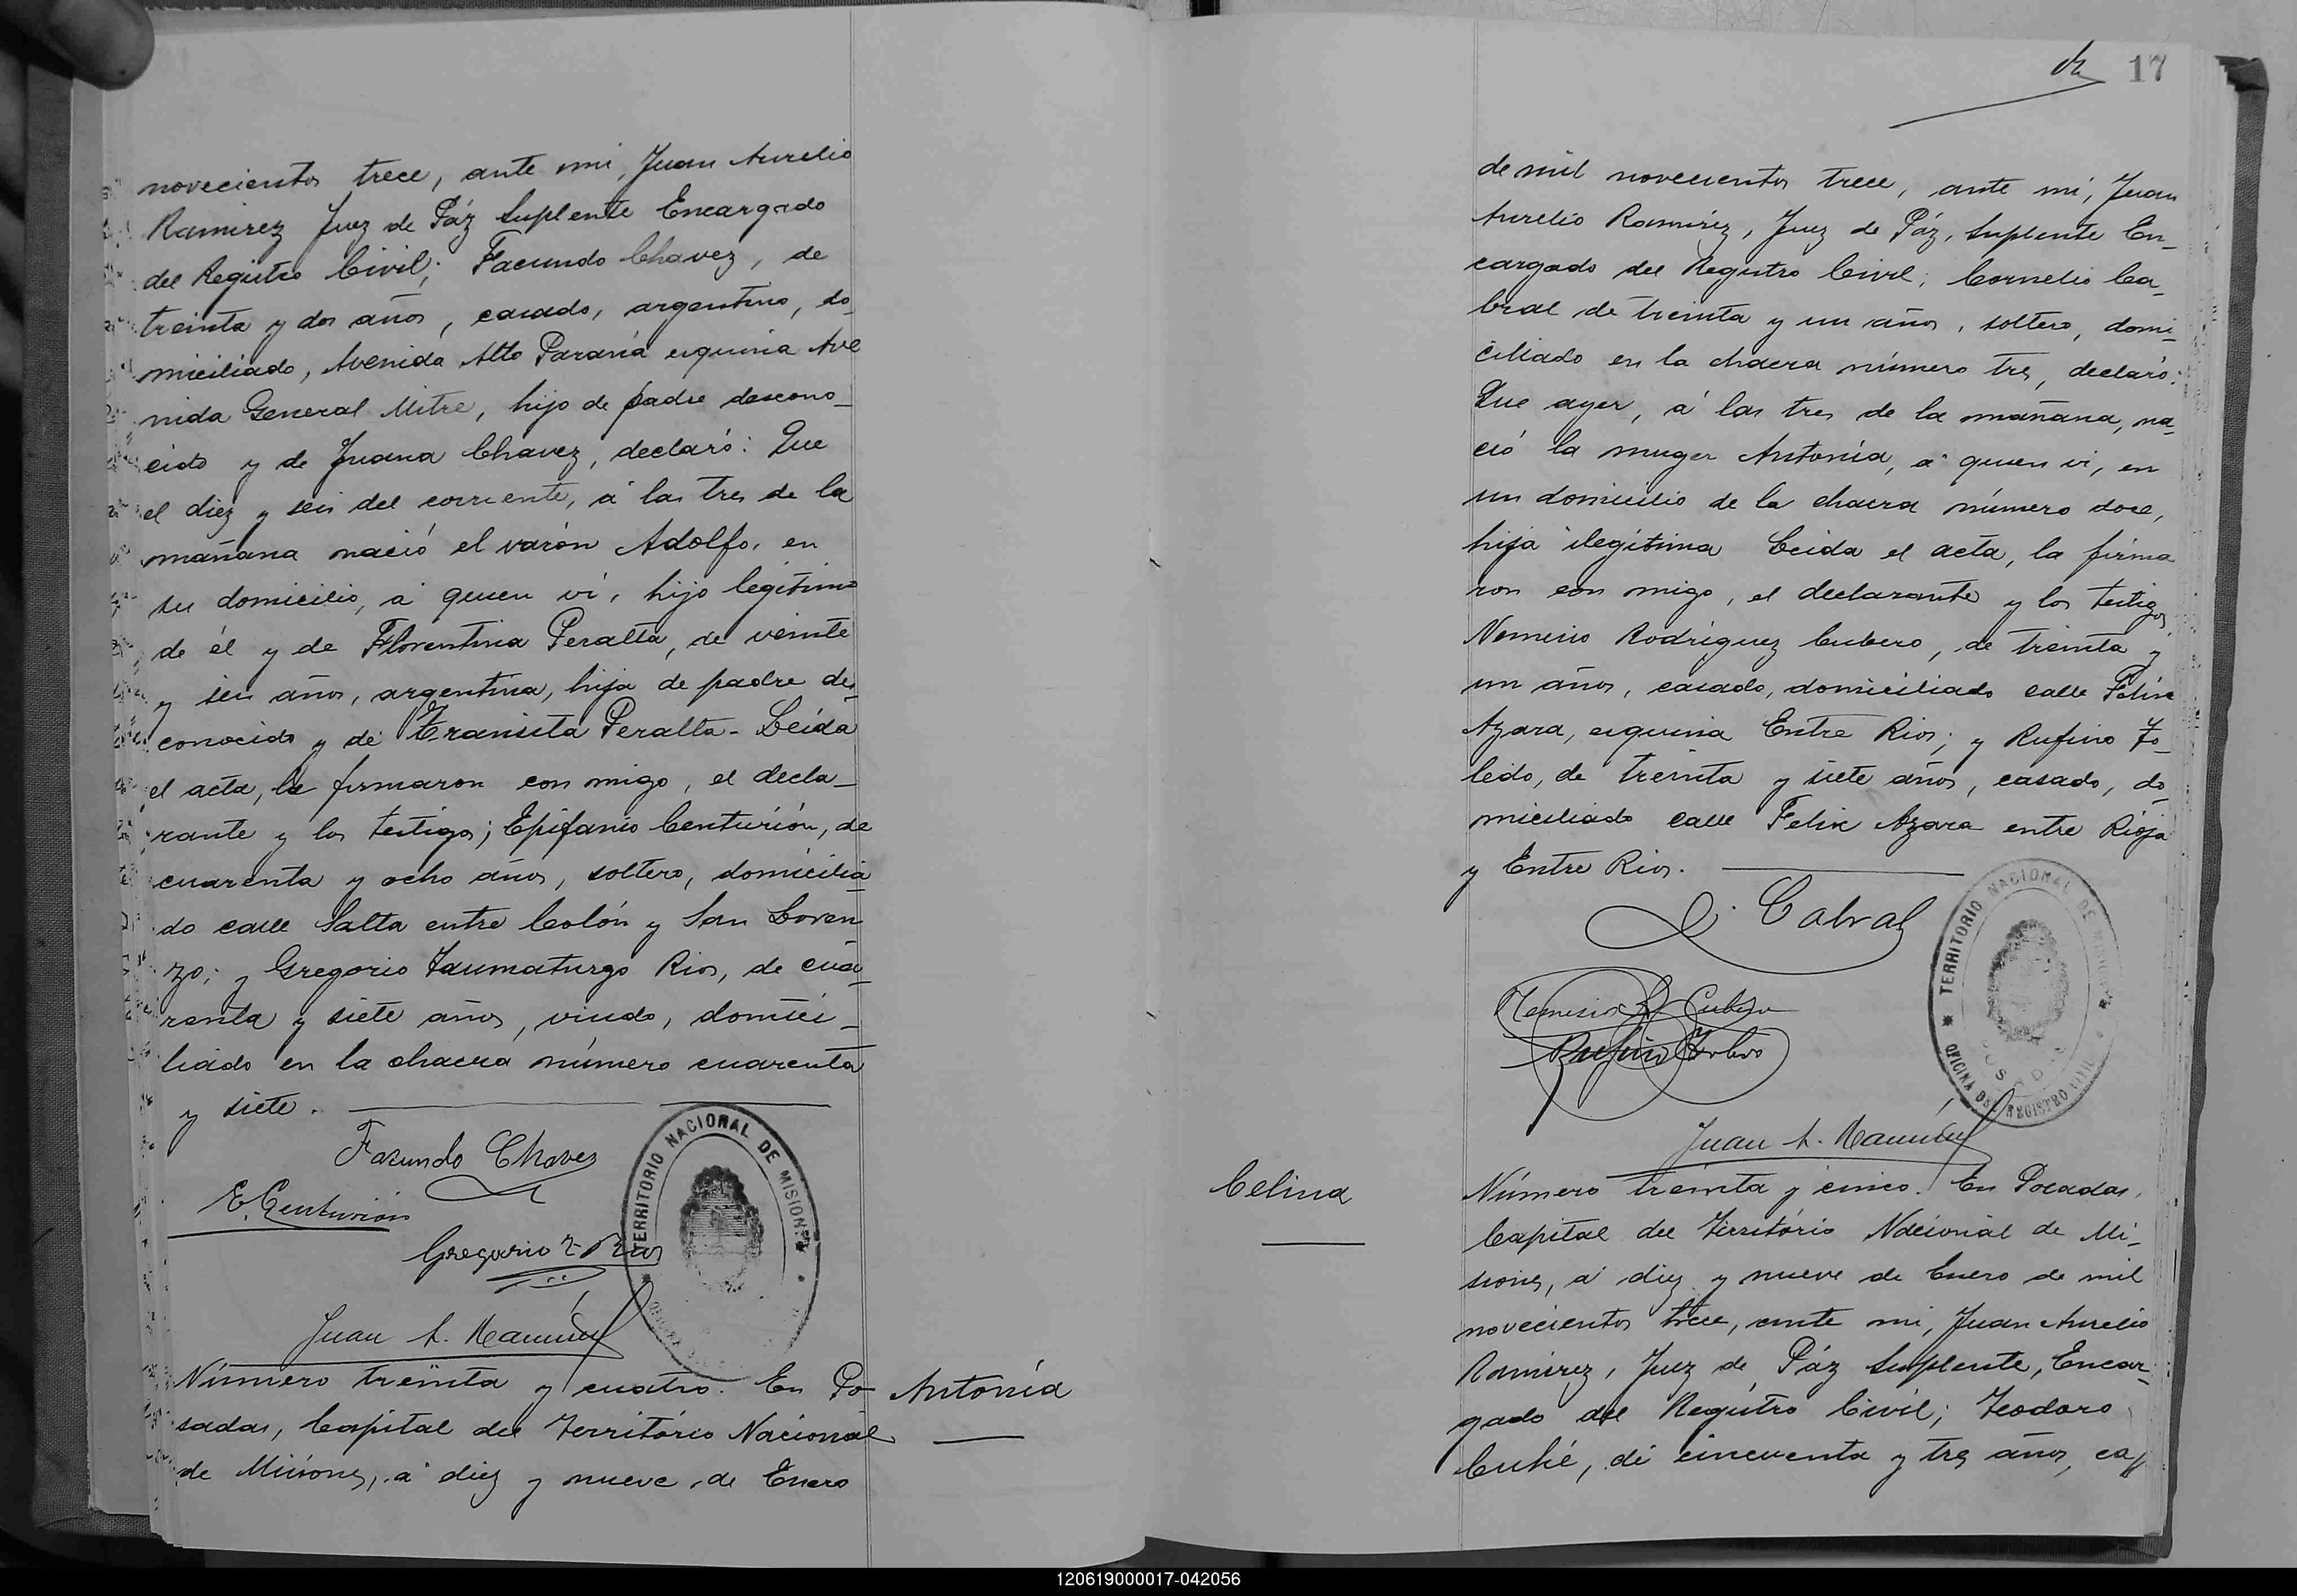 novecientos trece, ante mi, Juan Aurelio
Ramirez Juez de Páz Suplente Encargado
del Registro Civil; Facundo Chavez, de
treinta y dos años, casado, argentino, do_
miciliado, Avenida Alto Paraná esquina Ave
nida General Mitre, hijo de padre descono_
cido y de Juana Chavez, declaró: Que
el diez y seis del corriente, á las tres de la
mañana nació el varón Adolfo, en
su domicilio, á quien vi, hijo legítimo
de él y de Florentina Peralta, de veinte
y seis años, argentina, hija de padre des_
conocido y de Transita Peralta - Leida
el acta, la firmaron con migo, el decla_
rante y los testigos; Epifanio Centurión, de
cuarenta y ocho años, soltero, domicilia_
do calle Salta entre Colón y San Loren
zo; y Gregorio Taumaturgo Rios, de cua_
renta y siete años, viudo, domici_
liado en la chacra número cuarenta
y siete.
Facundo Chavez
E. Centurión
Gregorio T. Rios
TERRITORIO NACIONAL DE MISIONES
Juan A. Ramirez
Número treinta y cuatro. En Po_
Antonia
sadas, Capital del Território Nacional
de Misiones, á diez y nueve de Enero
17
de mil novecientos trece, ante mi, Juan
Aurelio Ramirez, Juez de Páz, Suplente En_
cargado del Registro Civil; Cornelio Ca_
bral de treinta y un años, soltero, domi_
ciliado en la chacra número tres, declaró:
Que ayer, á las tres de la mañana, na_
ció la muger Antonia, á quien vi, en
un domicilio de la chacra número doce,
hija ilegítima Leida el acta, la firma
ron con migo, el declarante y los testigos,
Nemesio Rodriguez Cubero, de treinta y
un años, casado, domiciliado calle Felix
Azara, esquina Entre Rios; y Rufino To_
ledo, de treinta y siete años, casado, do_
miciliado calle Felix Azara entre Rioja
y Entre Rios.
C. Cabral
Nemesio R. Cubero
Rufino Toledo
TERRITORIO NACIONAL DE MISIONES
OFICINA DEL REGISTRO CIVIL
POSADAS
Juan A. Ramirez
Celina
Número treinta y cinco. En Posadas,
Capital del Território Nacional de Mi_
siones, á diez y nueve de Enero de mil
novecientos trece, ante mi, Juan Aurelio
Ramirez, Juez de Páz Suplente, Encar_
gado del Registro Civil; Teodoro
de cincuenta y tres años, ca_
120619000017-042056